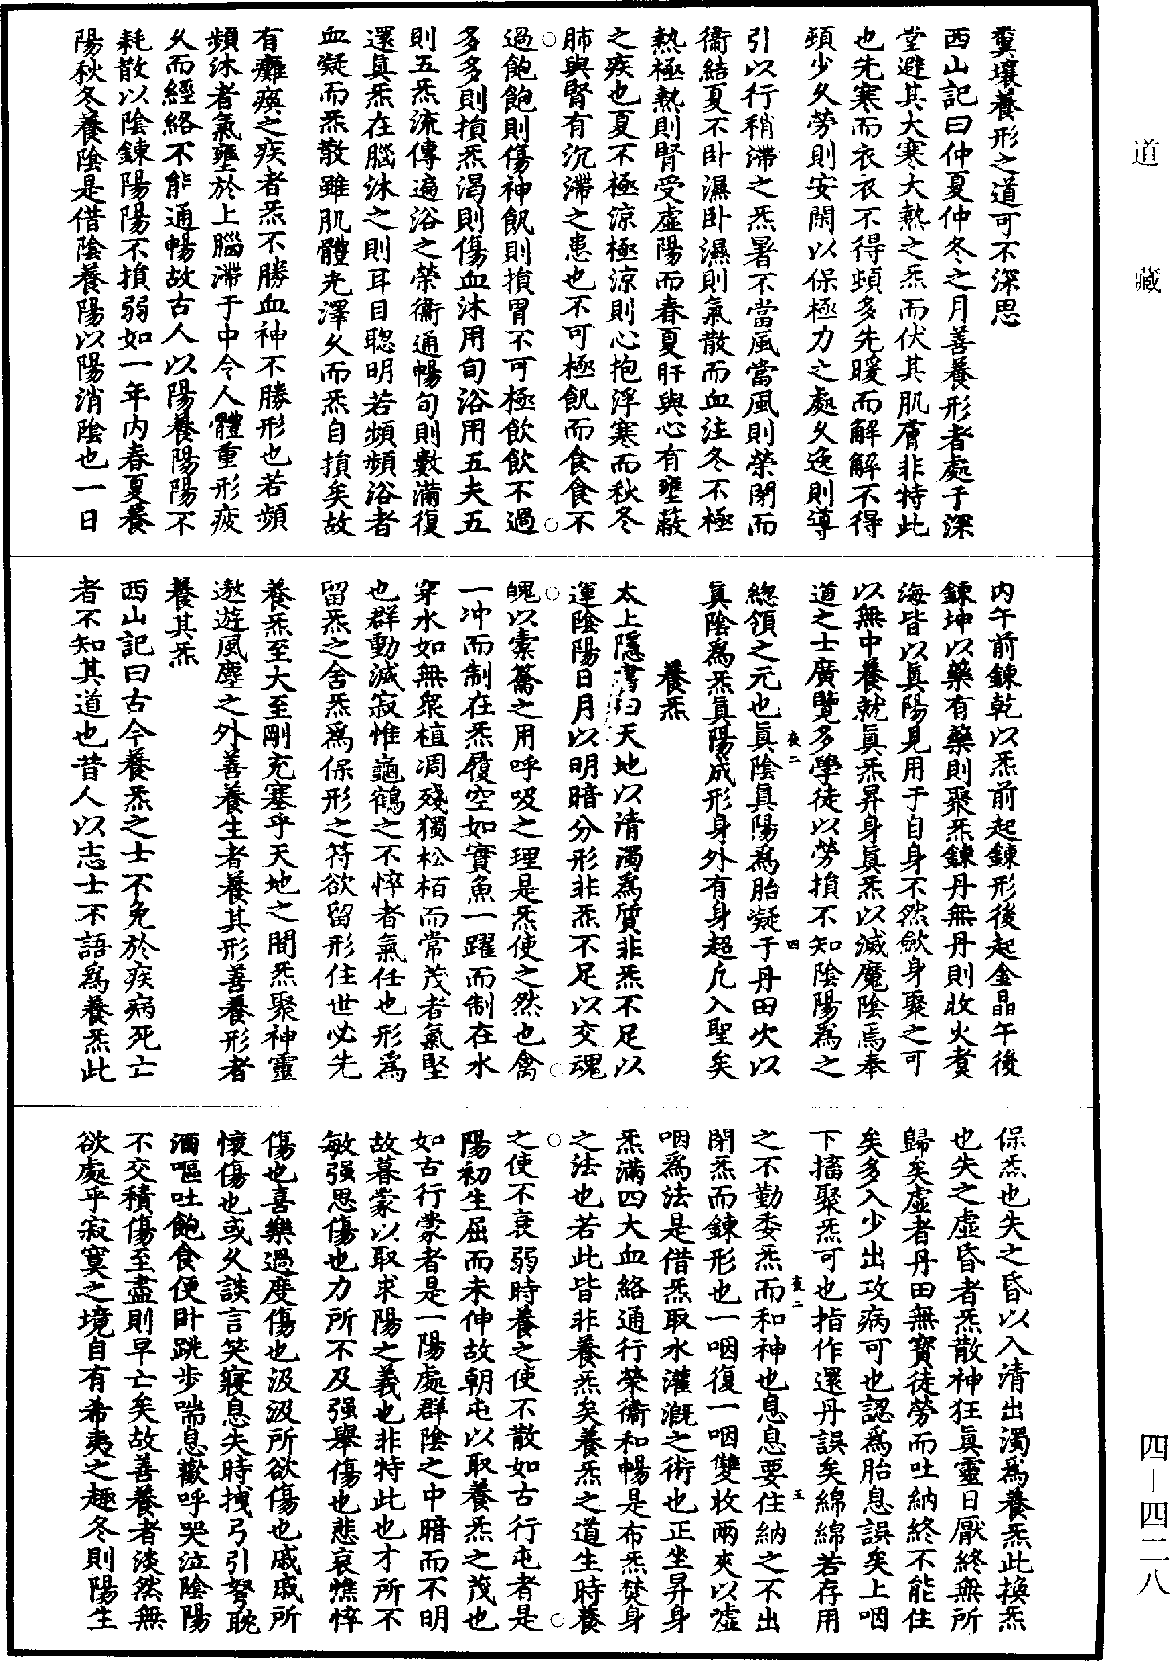 道藏
四—四二八
糞壤養形之道可不深思
西山記曰仲夏仲冬之月善養形者處于深
堂避其大寒大熱之炁而伏其肌膚非特此
也先寒而衣衣不得頻多先暖而解解不得
頓少久勞則安閑以保極力之處久逸則導
引以行稍滯之炁暑不當風當風則榮閉而
衛結夏不卧濕卧濕則氣散而血注冬不極
熱極熱則腎受虛陽而春夏肝與心有壅蔽
之疾也夏不極涼極涼則心抱浮寒而秋冬
肺與腎有沉滯之患也不可極飢而食食不
過飽飽則傷神飢則損胃不可極飲飲不過
多多則損炁渴則傷血沐用旬浴用五夫五
則五炁流傳遍浴之榮衛通暢旬則數滿復
還真炁在腦沐之則耳目聦明若頻頻浴者
血凝而炁散雖肌體光澤久而炁自損矣故
有癱瘓之疾者炁不勝血神不勝形也若頻
頻沐者氣壅於上腦滯于中令人體重形疲
久而經絡不能通暢故古人以陽養陽陽不
耗散以陰鍊陽陽不損弱如一年内春夏養
陽秋冬養陰是借陰養陽以陽消陰也一日
内午前鍊乾以炁前起鍊形後起金晶午後
鍊坤以藥有藥則聚炁鍊丹無丹則收火煑
海皆以真陽見用于自身不然歛身聚之可
以無中養就真炁昇身真炁以滅魔陰焉奉
道之士廣覽多學徒以勞損不知陰陽為之
總領之元也真陰真陽為胎凝于丹田次以
真陰為炁真陽成形身外有身超凡入聖矣
養炁
太上隱書曰天地以清濁為質非炁不足以
運陰陽日月以明暗分形非炁不足以交魂
魄以橐籥之用呼吸之理是炁使之然也禽
一冲而制在炁履空如實魚一躍而制在水
穿水如無衆植凋殘獨松栢而常茂者氣堅
也群動滅寂惟龜鶴之不悴者氣任也形為
留炁之舍炁為保形之符欲留形住世必先
養炁至大至剛充塞乎天地之間炁聚神靈
遨遊風塵之外善養生者養其形善養形者
養其炁
西山記曰古今養炁之士不免於疾病死亡
者不知其道也昔人以志士不語為養炁此
保炁也失之昏以入清出濁為養炁此換炁
也失之虛昏者炁散神狂真靈日厭終無所
歸矣虛者丹田無寳徒勞而吐納終不能住
矣多入少出攻病可也認為胎息誤矣上咽
下搐聚炁可也指作還丹誤矣綿綿若存用
之不勤委炁而和神也息息要住納之不出
閉炁而鍊形也一咽復一咽雙收兩夾以噓
咽為法是借炁取水灌溉之術也正坐昇身
炁滿四大血絡通行榮衛和暢是布炁焚身
之法也若此皆非養炁矣養炁之道生時養
之使不衰弱時養之使不散如古行屯者是
陽初生屈而未伸故朝屯以取養炁之茂也
如古行蒙者是一陽處群陰之中暗而不明
故暮蒙以取求陽之義也非特此也才所不
敏强思傷也力所不及强舉傷也悲哀憔悴
傷也喜樂過度傷也汲汲所欲傷也戚戚所
懷傷也或久談言笑寢息失時拽弓引弩耽
酒嘔吐飽食便卧跳步喘息歡呼哭泣陰陽
不交積傷至盡則早亡矣故善養者淡然無
欲處乎寂寞之境自有希夷之趣冬則陽生